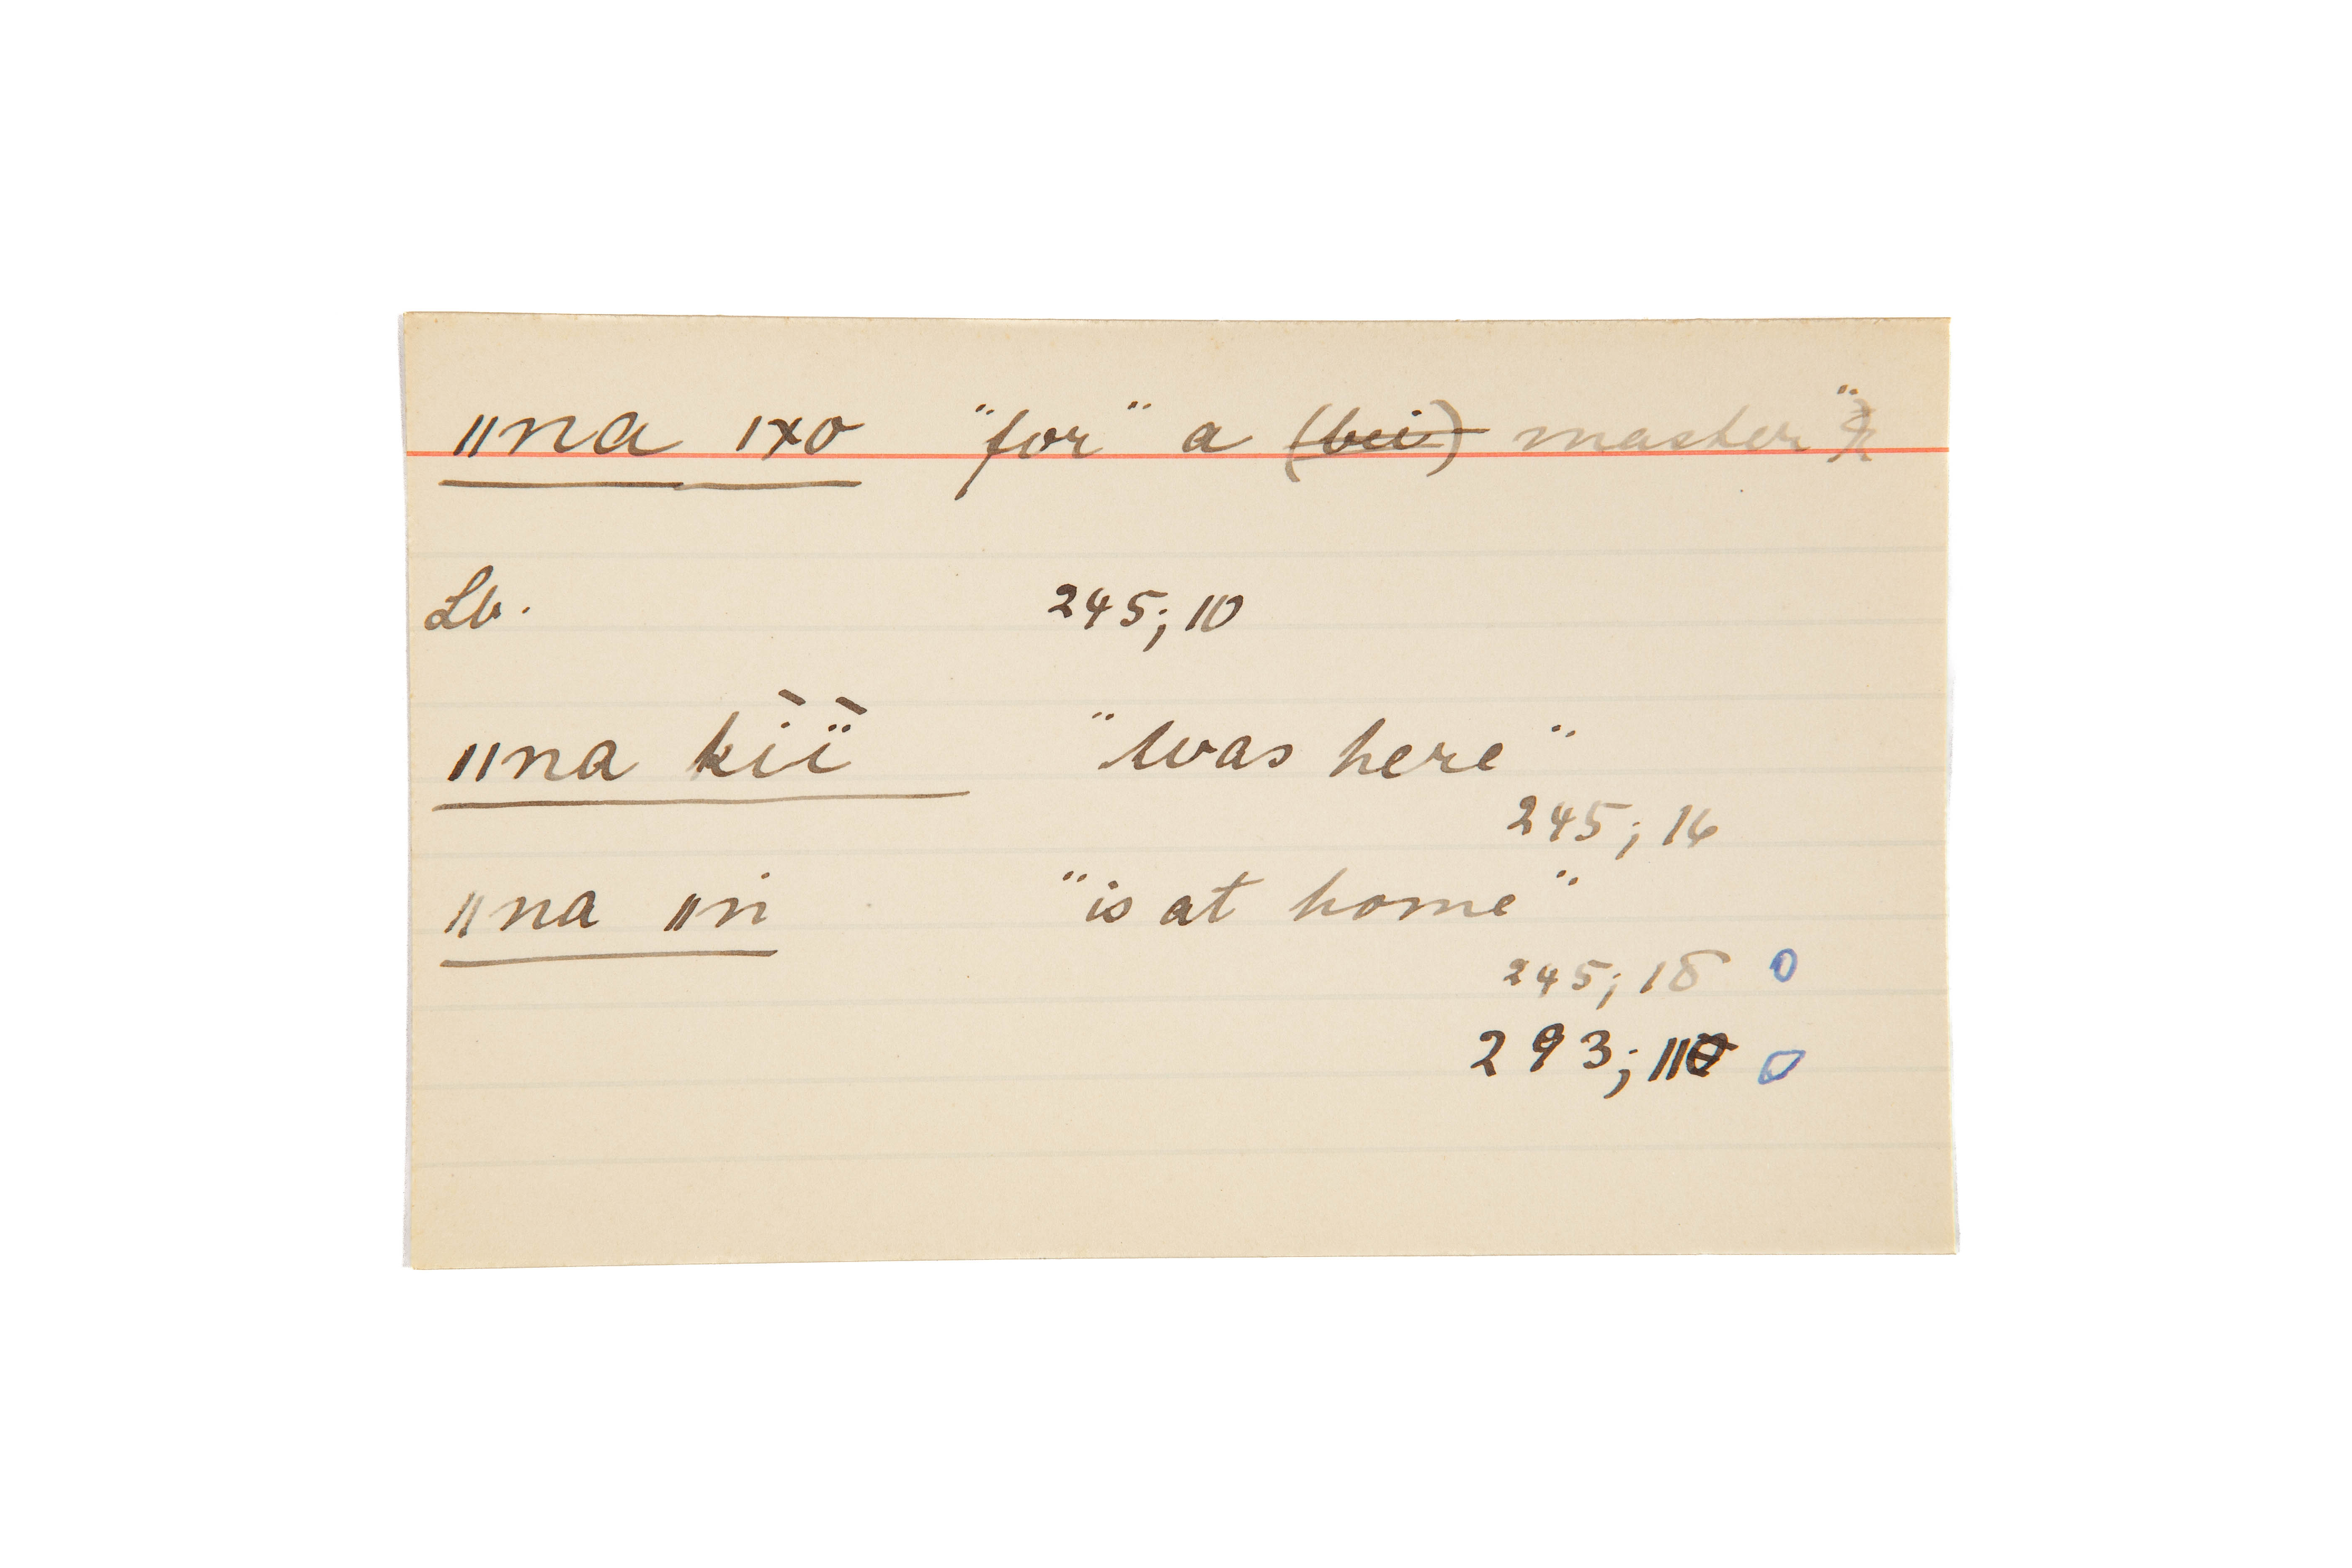 ǁna ǀxo "for" a (bei) master"
Lb. 245; 10
ǁna kìï̀ "was here"
245; 16
ǁna ǁn̈ "is at home"
245; 18 0
293; 11 0